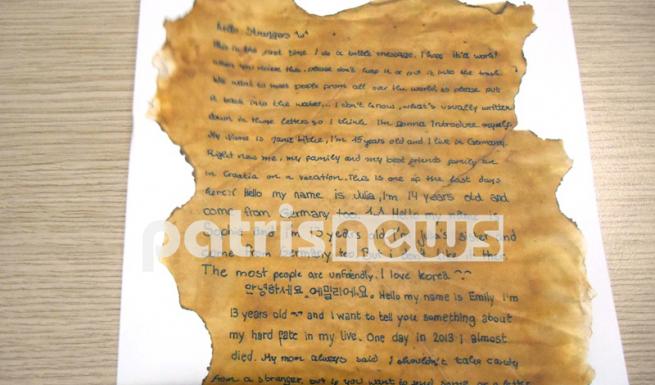 hello Strangers
This is the first time I do a bottle message. I hope it'll work!
when you recieve this, please don't keep it or put it into the trash.
We want to meet people from all over the world so please put
it back into the water... I don't know, what's usually written
down in those letters so I think I'm gonna introduce myself.
My Name is, I'm 15 years old and I live in Germany.
Right now me, my family and my best friends family are
in Croatia on a vacation. This is one of the last days
here:( Hello my name is Julia, I'm 14 years old and
come from Germany too. Hello my name is
Sophie and I'm 13 years old I'm Julia's sister and
come from Germany too. But I don't like
patrisnews
The most people are unfriendly. I love Korea ^^
안녕하세요. 에밀리에요. Hello my name is Emily I'm
13 years old and I want to tell you something about
my hard fate in my live. One day in 2013 I almost
died. My mom always said I shouldn't take candy
from a stranger, but if you want to send some or a letter